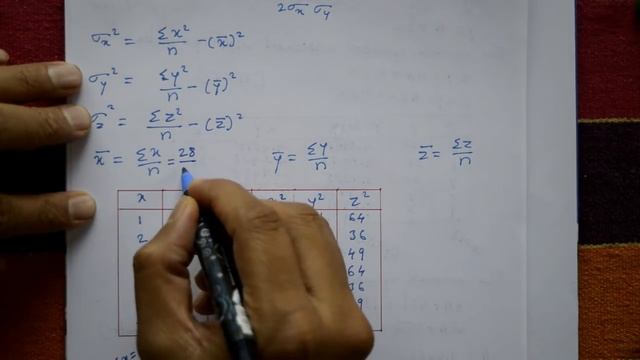 2σx σy
σx² = Σx²/n - (x̄)²
σy² = Σy²/n - (ȳ)²
σz² = Σz²/n - (z̄)²
x̄ = Σx/n = 28/ ȳ = Σy/n z̄ = Σz/n
x y² z²
1 64
2 36
49
64
36